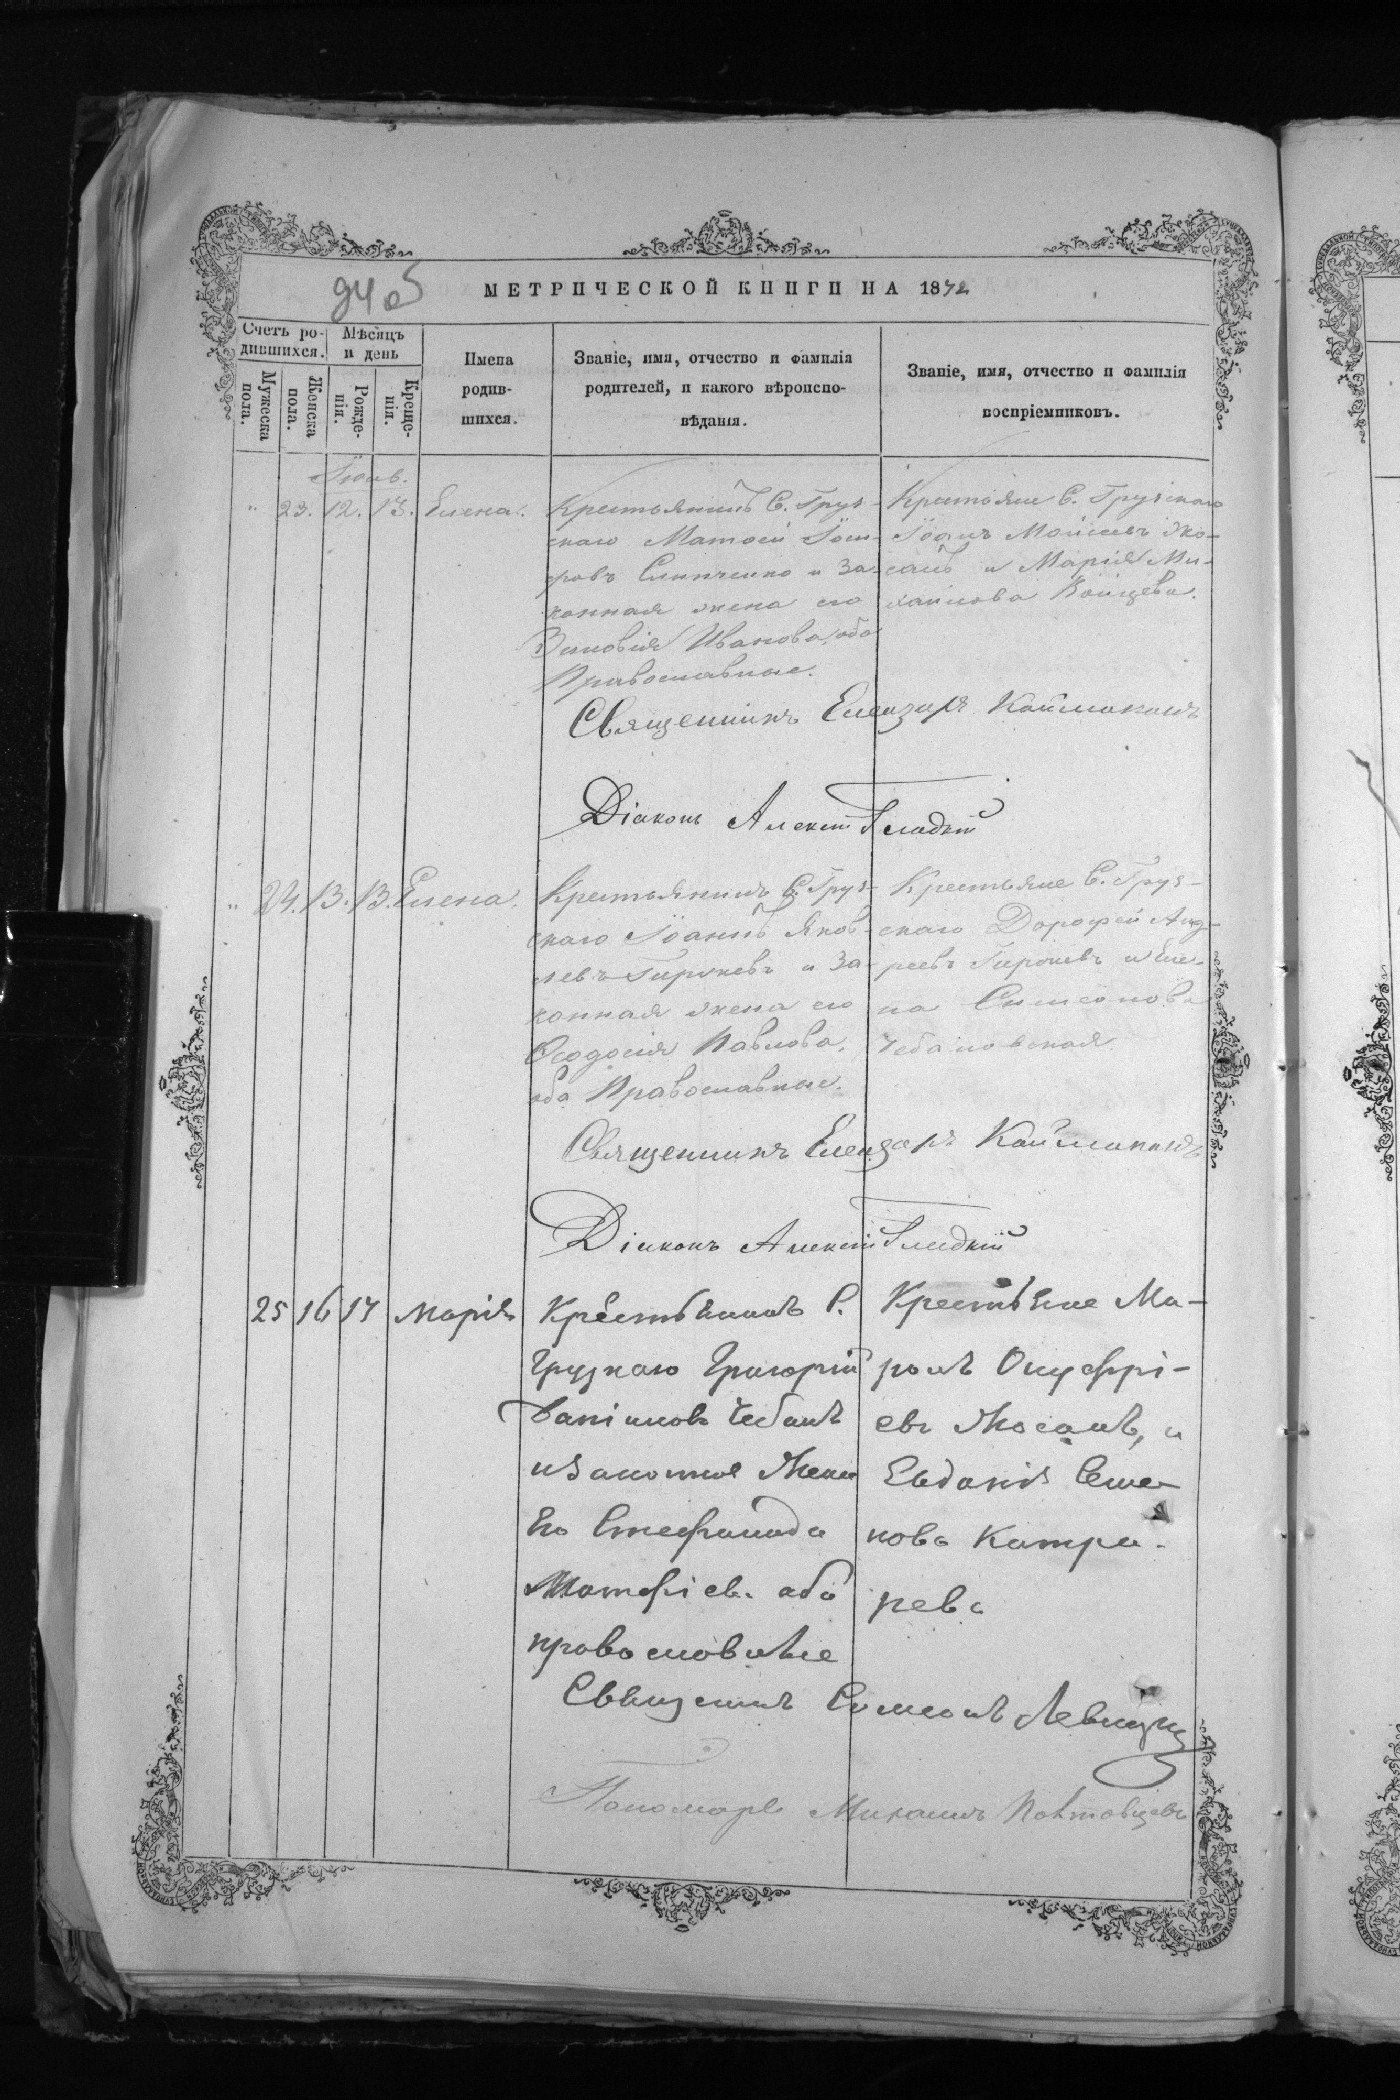 94 об
МЕТРИЧЕСКОЙ КНИГИ НА 1872
Счетъ ро-
дившихся.
Мѣсяцъ
и день
Мужеска
пола.
Женска
пола.
Рожде-
нія.
Креще-
нія.
Имена
родив-
шихся.
Званіе, имя, отчество и фамилія
родителей, и какого вѣроиспо-
вѣданія.
Званіе, имя, отчество и фамилія
воспріемниковъ.
Іюнь.
" 23. 12. 13. Елена.
Крестьянинъ С. Груз-
скаго Матѳей Іоси-
фовъ и За-
конная жена его
Зиновія Иванова, оба
Православные.
Крестьяне С. Грузскаго
Іоанъ Моисеевъ Жо-
санъ и Марія Ми-
хайлова Войцева.
Священникъ Елеазаръ Каймаканъ
Діаконъ Алексій Гладкій
" 24. 13. 13. Елена.
Крестьянинъ С. Груз-
скаго Іоаннъ Яков-
левъ и За-
конная жена его
Ѳеодосія Павлова,
оба Православные.
Крестьяне С. Груз-
скаго Дорофей Анд-
реевъ и Еле-
на Симеонова
Чебановская
Священникъ Елеазаръ Каймаканъ
Діаконъ Алексій Гладкій
25 16 17 Марія
Крестьянинъ С.
Грузкаго Григорій
Даніиловъ Чебанъ
изаконная Жена
Его Стефанида
Матфіев. оба
православные
Крестьяне Ма-
ронъ Онуфрі-
евъ Жосанъ, и
Евдокія Семе-
нова Катра-
рева
Священикъ Симеонъ Левицкій
Пономарь Михаилъ